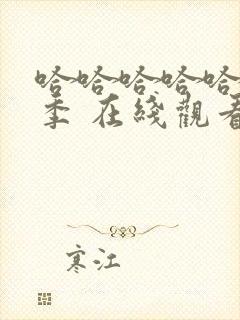 哈哈哈哈哈
季 在綫觀看
寒江